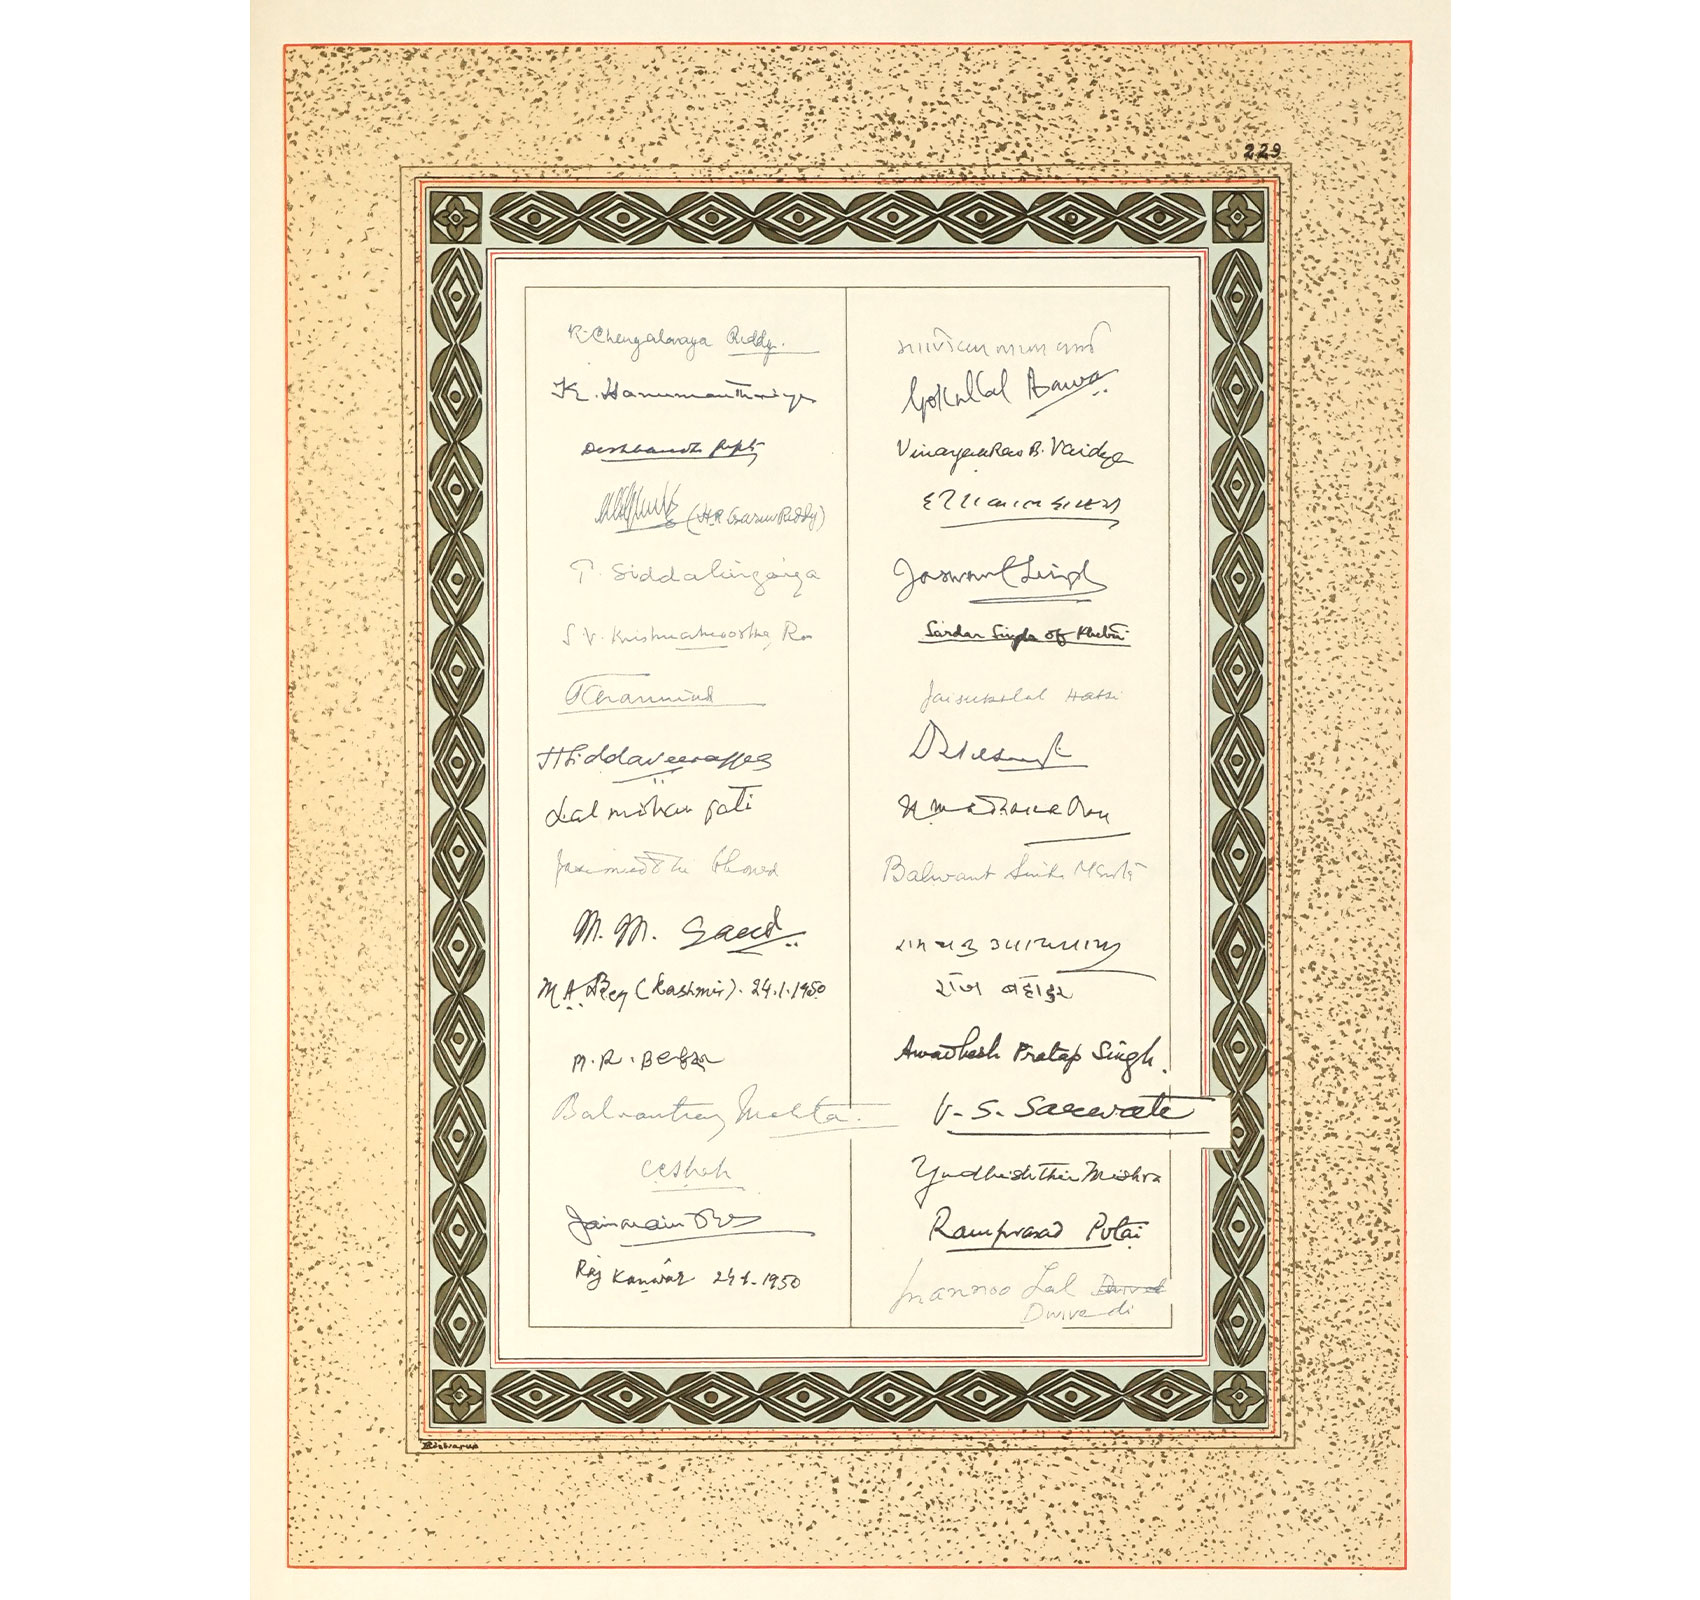 229
K. Chengalaraya Reddy.
K. Hanumanthaiya
Deshbandhu Gupta
(H.R. Guruv Reddy)
T. Siddalingaiya
S. V. Krishnamoorthy Rao
H Siddaveerappa
Lal mohan pati
M. M. Saeed
M A Beg (Kashmir). 24.1.1950
M. R. Berjar
Balvantray Mehta.
C C Shah
Jainarain Vyas
Raj Kanwar 24.1.1950
माणिक्य लाल वर्मा
Gokul Lal Asawa
Vinayak Rao B. Vaidya
Jaswant Singh
Sardar Singh of Khetri
Jaisukhlal Hathi
Balwant Sinha Mehta
राम चन्द्र उपाध्याय
राज बहादुर
Awadhesh Pratap Singh.
V. S. Sarwate
Yudhishthir Mishra
Ramprasad Potai
Mannoo Lal
Dwivedi
Biswarup